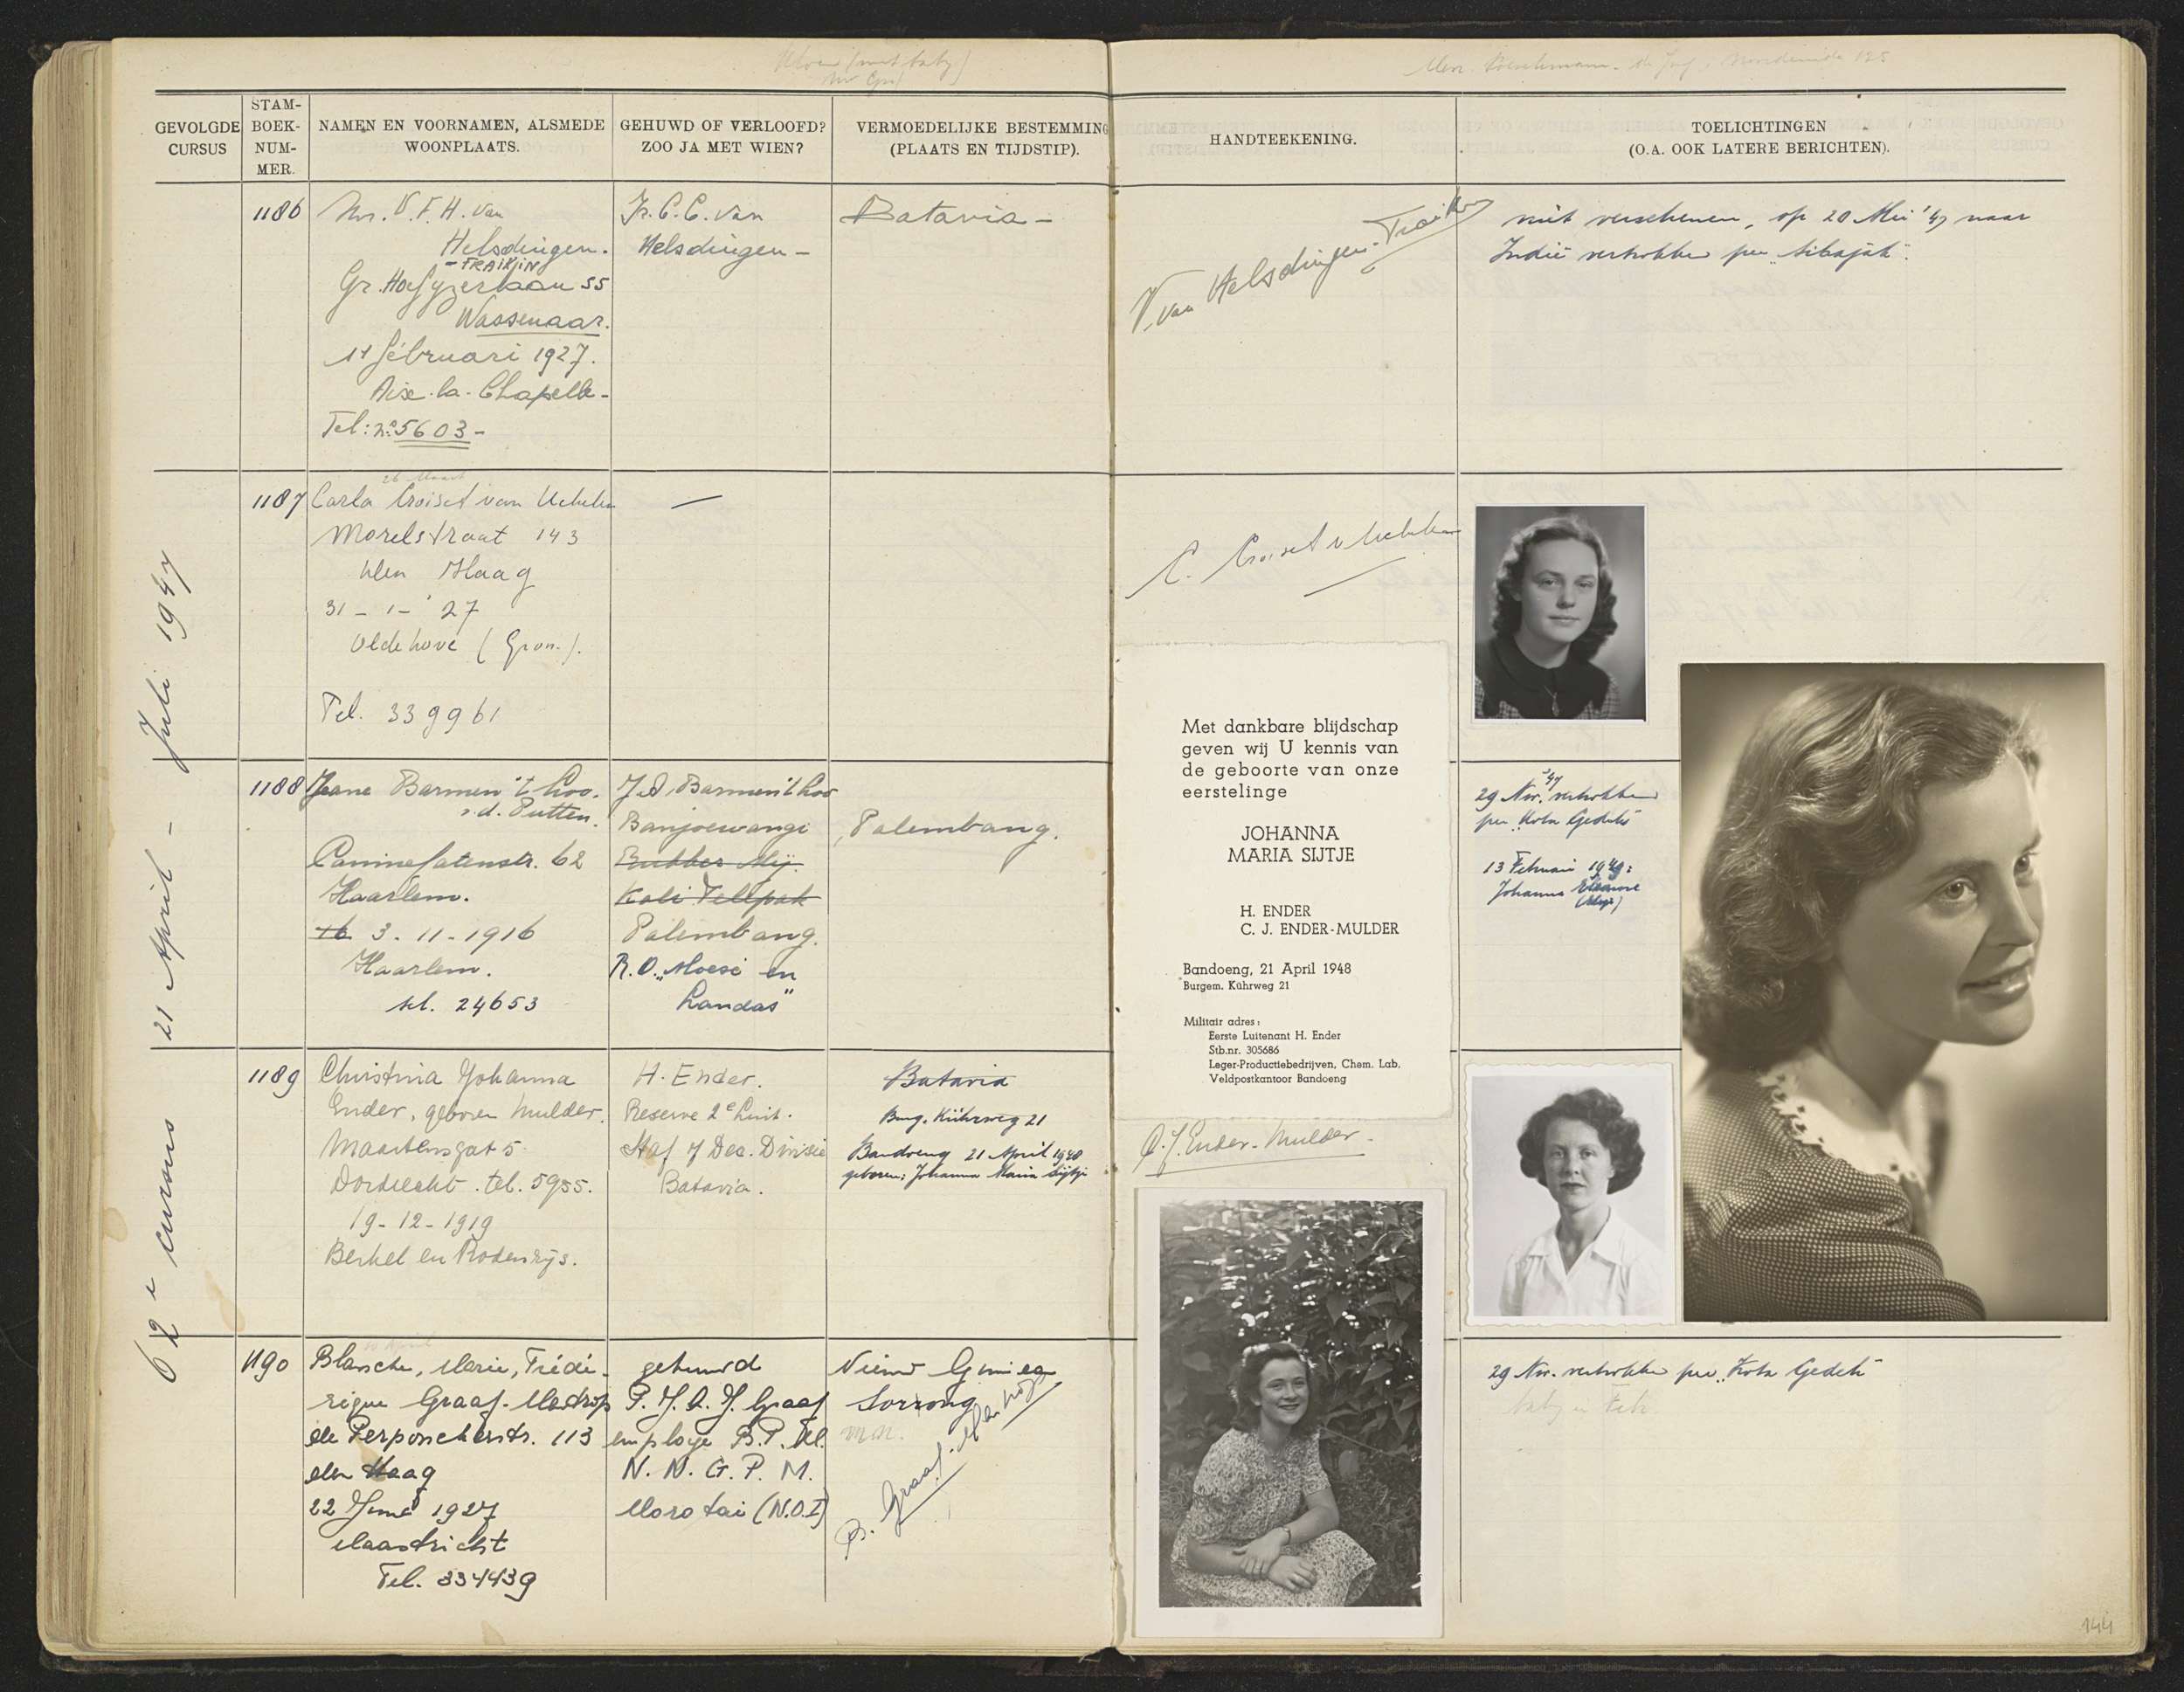 (met baby)
GEVOLGDE CURSUS
STAM-BOEK-NUM-MER.
NAMEN EN VOORNAMEN, ALSMEDE WOONPLAATS.
GEHUWD OF VERLOOFD? ZOO JA MET WIEN?
VERMOEDELIJKE BESTEMMING (PLAATS EN TIJDSTIP).
HANDTEEKENING.
TOELICHTINGEN (O.A. OOK LATERE BERICHTEN).
62e cursus 21 April - Juli 1947
1186
Mr. V. F. H. van
Helsdingen.
- TRAIKJIN
Gr. Hoefyzerlaan 55
Wassenaar.
11 februari 1927.
Aix-la-Chapelle-
Tel: no 5603-
Ir. C. C. van
Helsdingen -
Batavia -
V. van Helsdingen-
niet verschenen, op 20 Mei '47 naar
Indië vertrokken per "Sibajak".
1187
26 Maart
Carla Croiset van Uchelen
Morelstraat 143
den Haag
31 - 1 - '27
Oldehove (Gron.).
Tel. 339961
—
C. Croiset v Uchelen
1188
Jeane Barmen 't Loo.
v.d. Putten.
Caninefatenstr. 62
Haarlem.
16 3-11-1916
Haarlem.
tel. 24653
J. A. Barmen 't Loo
Banjoewangi
Rubber Mij.
Kali Telepak
Palembang.
R.O. "Moesi en
Landas"
Palembang.
29 Nov. '47 vertrokken
per "Kota Gedeh"
13 Februari 1949:
Johanna Eleanore
1189
Christina Johanna
Ender, geboren Mulder.
Maartensgat 5
Dordrecht. tel. 5955.
19-12-1919
Berkel en Rodenrijs.
H. Ender.
Reserve 2e Luit.
Staf 7 Dec. Divisie
Batavia.
Batavia
Burg. Kührweg 21
Bandoeng 21 April 1948
geboren: Johanna Maria Sijtje
Met dankbare blijdschap
geven wij U kennis van
de geboorte van onze
eerstelinge
JOHANNA
MARIA SIJTJE
H. ENDER
C. J. ENDER-MULDER
Bandoeng, 21 April 1948
Burgem. Kührweg 21
Militair adres:
Eerste Luitenant H. Ender
Stb.nr. 305686
Leger-Productiebedrijven, Chem. Lab.
Veldpostkantoor Bandoeng
C. J. Ender-Mulder-
1190
Blanche, Marie, Frédé-
rique Graaf-
de Perponcherstr. 113
den Haag
22 Juni 1927
Maastricht
Tel. 334439
gehuwd
P. J. A. J. Graaf
employe B.P.M.
N. N. G. P. M.
Morotai (N.O.I)
Nieuw Guinea
Sorrong
B. Graaf-
29 Nov. vertrokken per "Kota Gedeh"
baby in Febr.
144